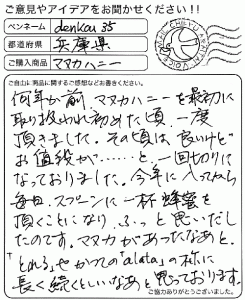 ご意見やアイデアをお聞かせください!!
ペンネーム denkou 35
都道府県 兵庫県
ご購入商品 マヌカハニー
ご自由に商品に関するご感想などお書きください。
何年か前、マヌカハニーを最初に
取り扱われ初めた頃、一度
頂きました。その頃は良いけど
お値段が……と、一回切りに
なっておりました。今年に入ってから
毎日、スプーンに一杯蜂蜜を
頂くことになり、ふっと思いだし
たのです。マヌカがあったなあと。
「とれる」やかつての「alata」の様に
長く続くといいなあと思っております。
ご協力ありがとうございました。